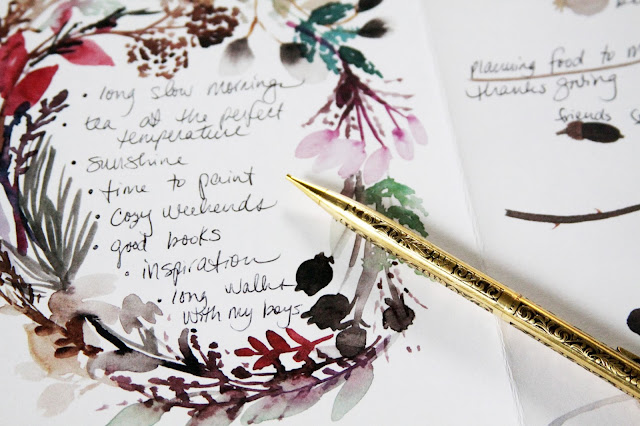 • long slow mornings
• tea at the perfect
temperature
• sunshine
• time to paint
• cozy weekends
• good books
• inspiration
• long walks
with my boys
planning food to
thanksgiving
friends